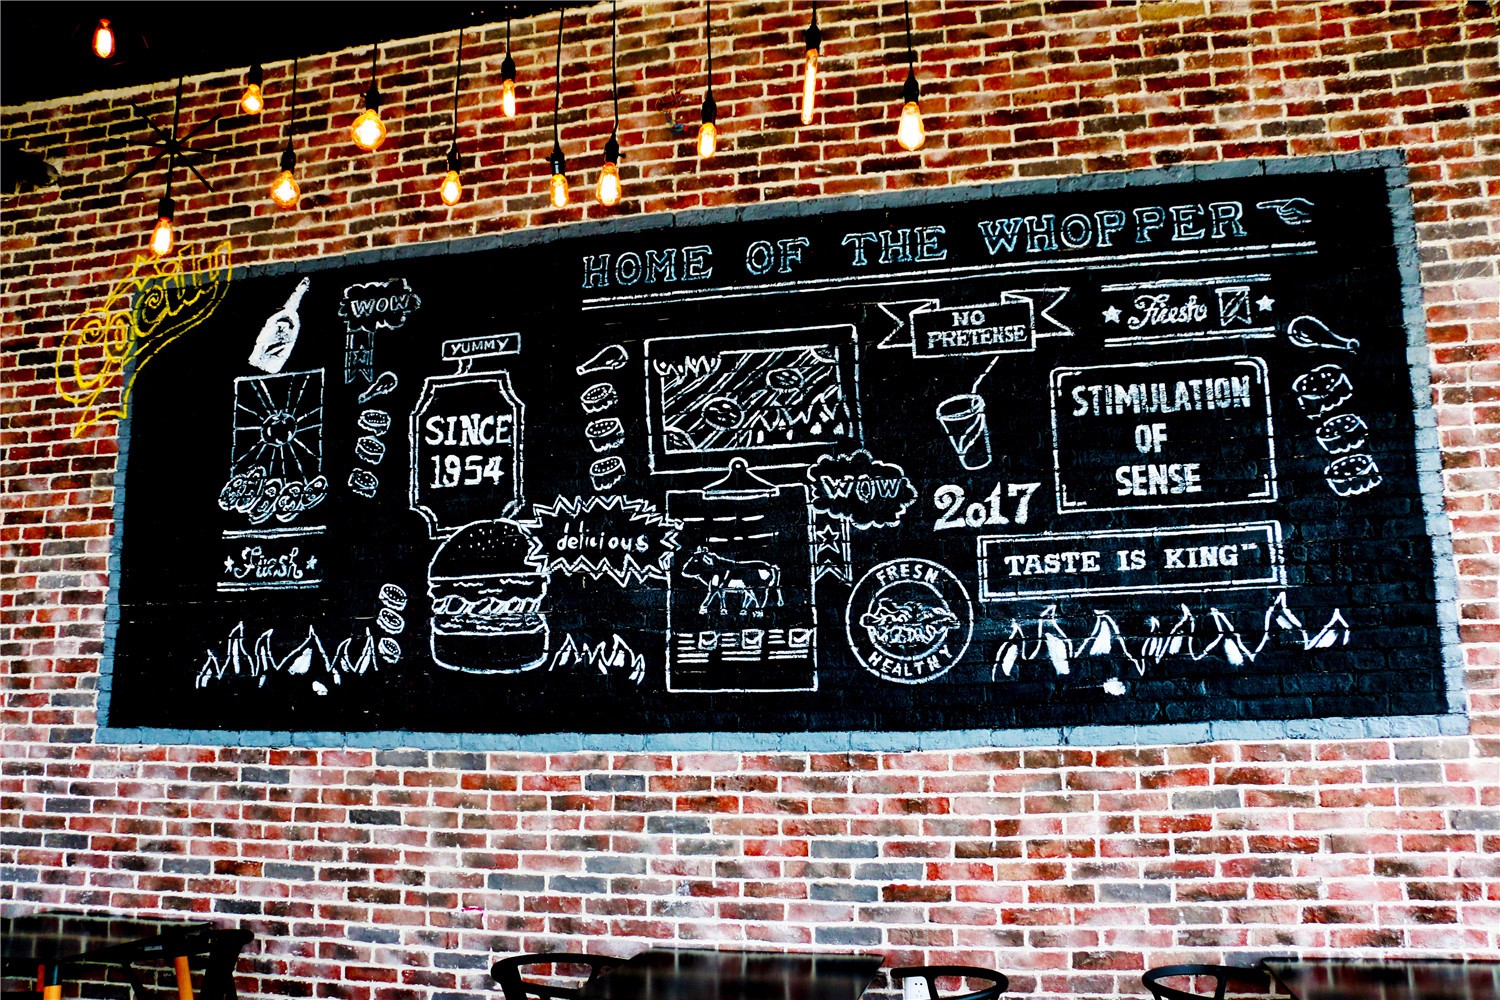 HOME OF THE WHOPPER
WOW
YUMMY
SINCE
1954
NO
PRETENSE
Fresh
STIMULATION
OF
SENSE
WOW
2017
delicious
TASTE IS KING™
Fresh
FRESH
HEALTHY